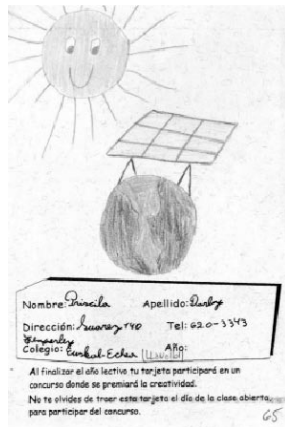 Nombre: Priscila Apellido: Darloy
Dirección: Suarez 740 Tel: 620-3343
Temperley
Colegio: Euskal-Echea Año:
Al finalizar el año lectivo tu tarjeta participará en un
concurso donde se premiará la creatividad.
No te olvides de traer esta tarjeta el día de la clase abierta
para participar del concurso.
65